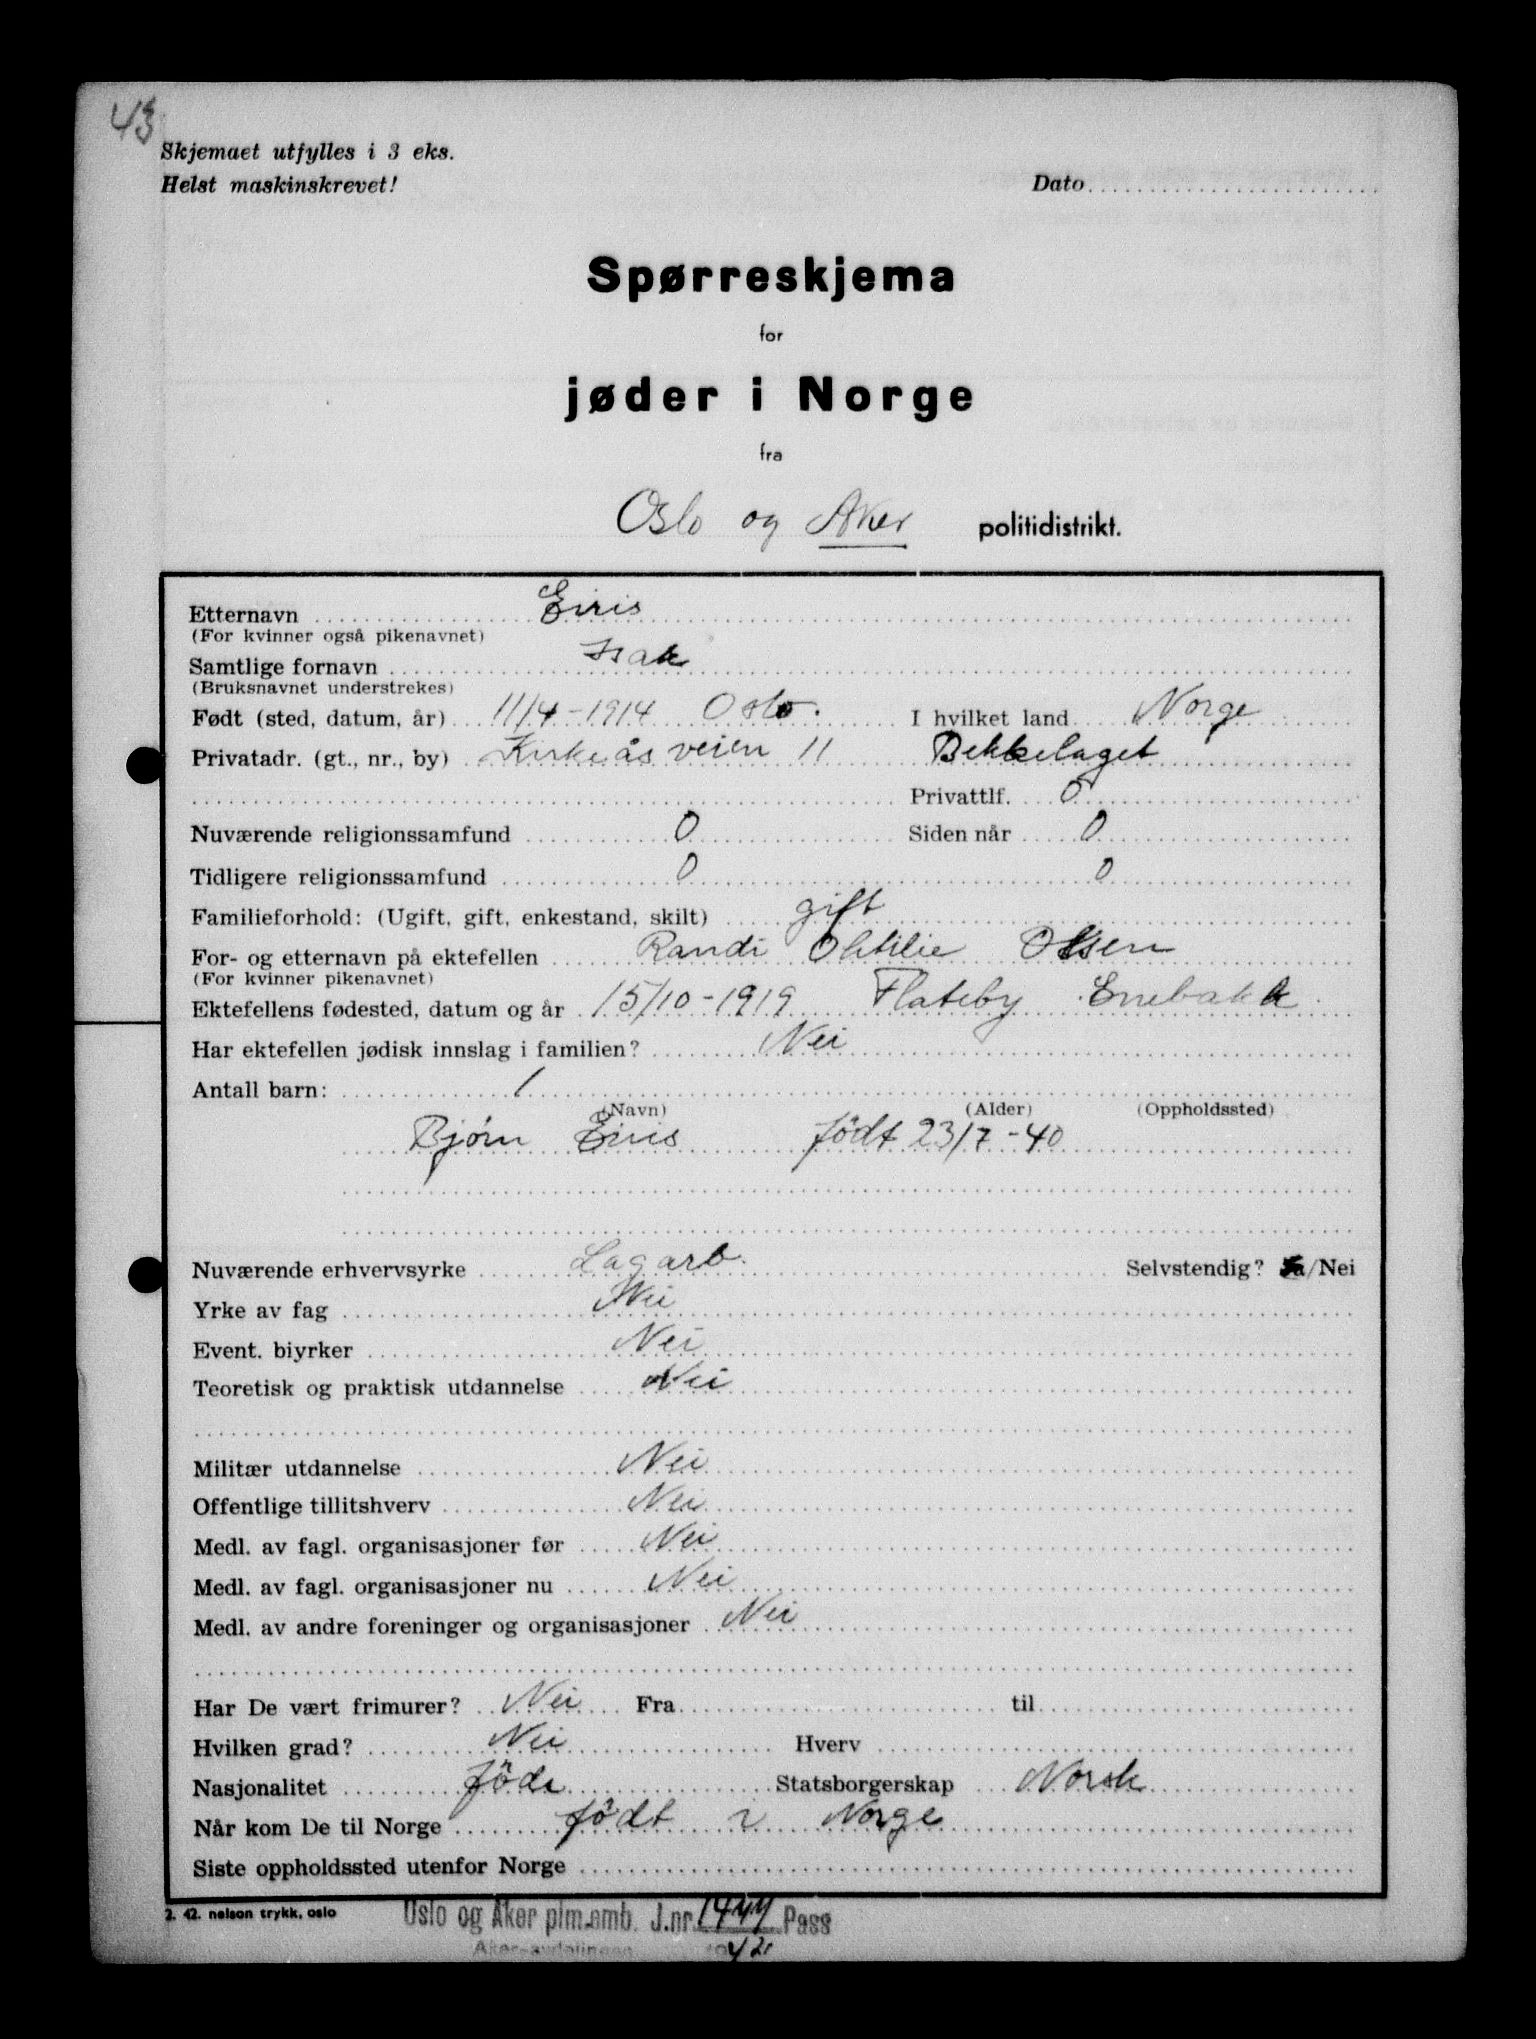 43
Skjemaet utfylles i 3 eks.
Helst maskinskrevet!
Dato
Spørreskjema
for
jøder i Norge
fra
Oslo og Aker politidistrikt.
Etternavn Eiris
(For kvinner også pikenavnet)
Samtlige fornavn Isak
(Bruksnavnet understrekes)
Født (sted, datum, år) 11/4-1914 Oslo. I hvilket land Norge
Privatadr. (gt., nr., by) Kirkeåsveien 11 Bekkelaget
Privattlf. 0
Nuværende religionssamfund 0 Siden når 0
Tidligere religionssamfund 0 0
Familieforhold: (Ugift, gift, enkestand, skilt) gift
For- og etternavn på ektefellen Randi Ottilie Olsen
(For kvinner pikenavnet)
Ektefellens fødested, datum og år 15/10-1919 Flateby Enebakk.
Har ektefellen jødisk innslag i familien? Nei
Antall barn: 1
(Navn) (Alder) (Oppholdssted)
Bjørn Eiris født 23/7-40
Nuværende erhvervsyrke Lagarb. Selvstendig? Ja/Nei
Yrke av fag Nei
Event. biyrker Nei
Teoretisk og praktisk utdannelse Nei
Militær utdannelse Nei
Offentlige tillitshverv Nei
Medl. av fagl. organisasjoner før Nei
Medl. av fagl. organisasjoner nu Nei
Medl. av andre foreninger og organisasjoner Nei
Har De vært frimurer? Nei Fra til
Hvilken grad? Nei Hverv
Nasjonalitet Jöde Statsborgerskap Norsk
Når kom De til Norge født i Norge
Siste oppholdssted utenfor Norge
2. 42. nelson trykk, oslo
Oslo og Aker plm.emb. J.nr. 1444 Pass
Aker-avdelingen 1942